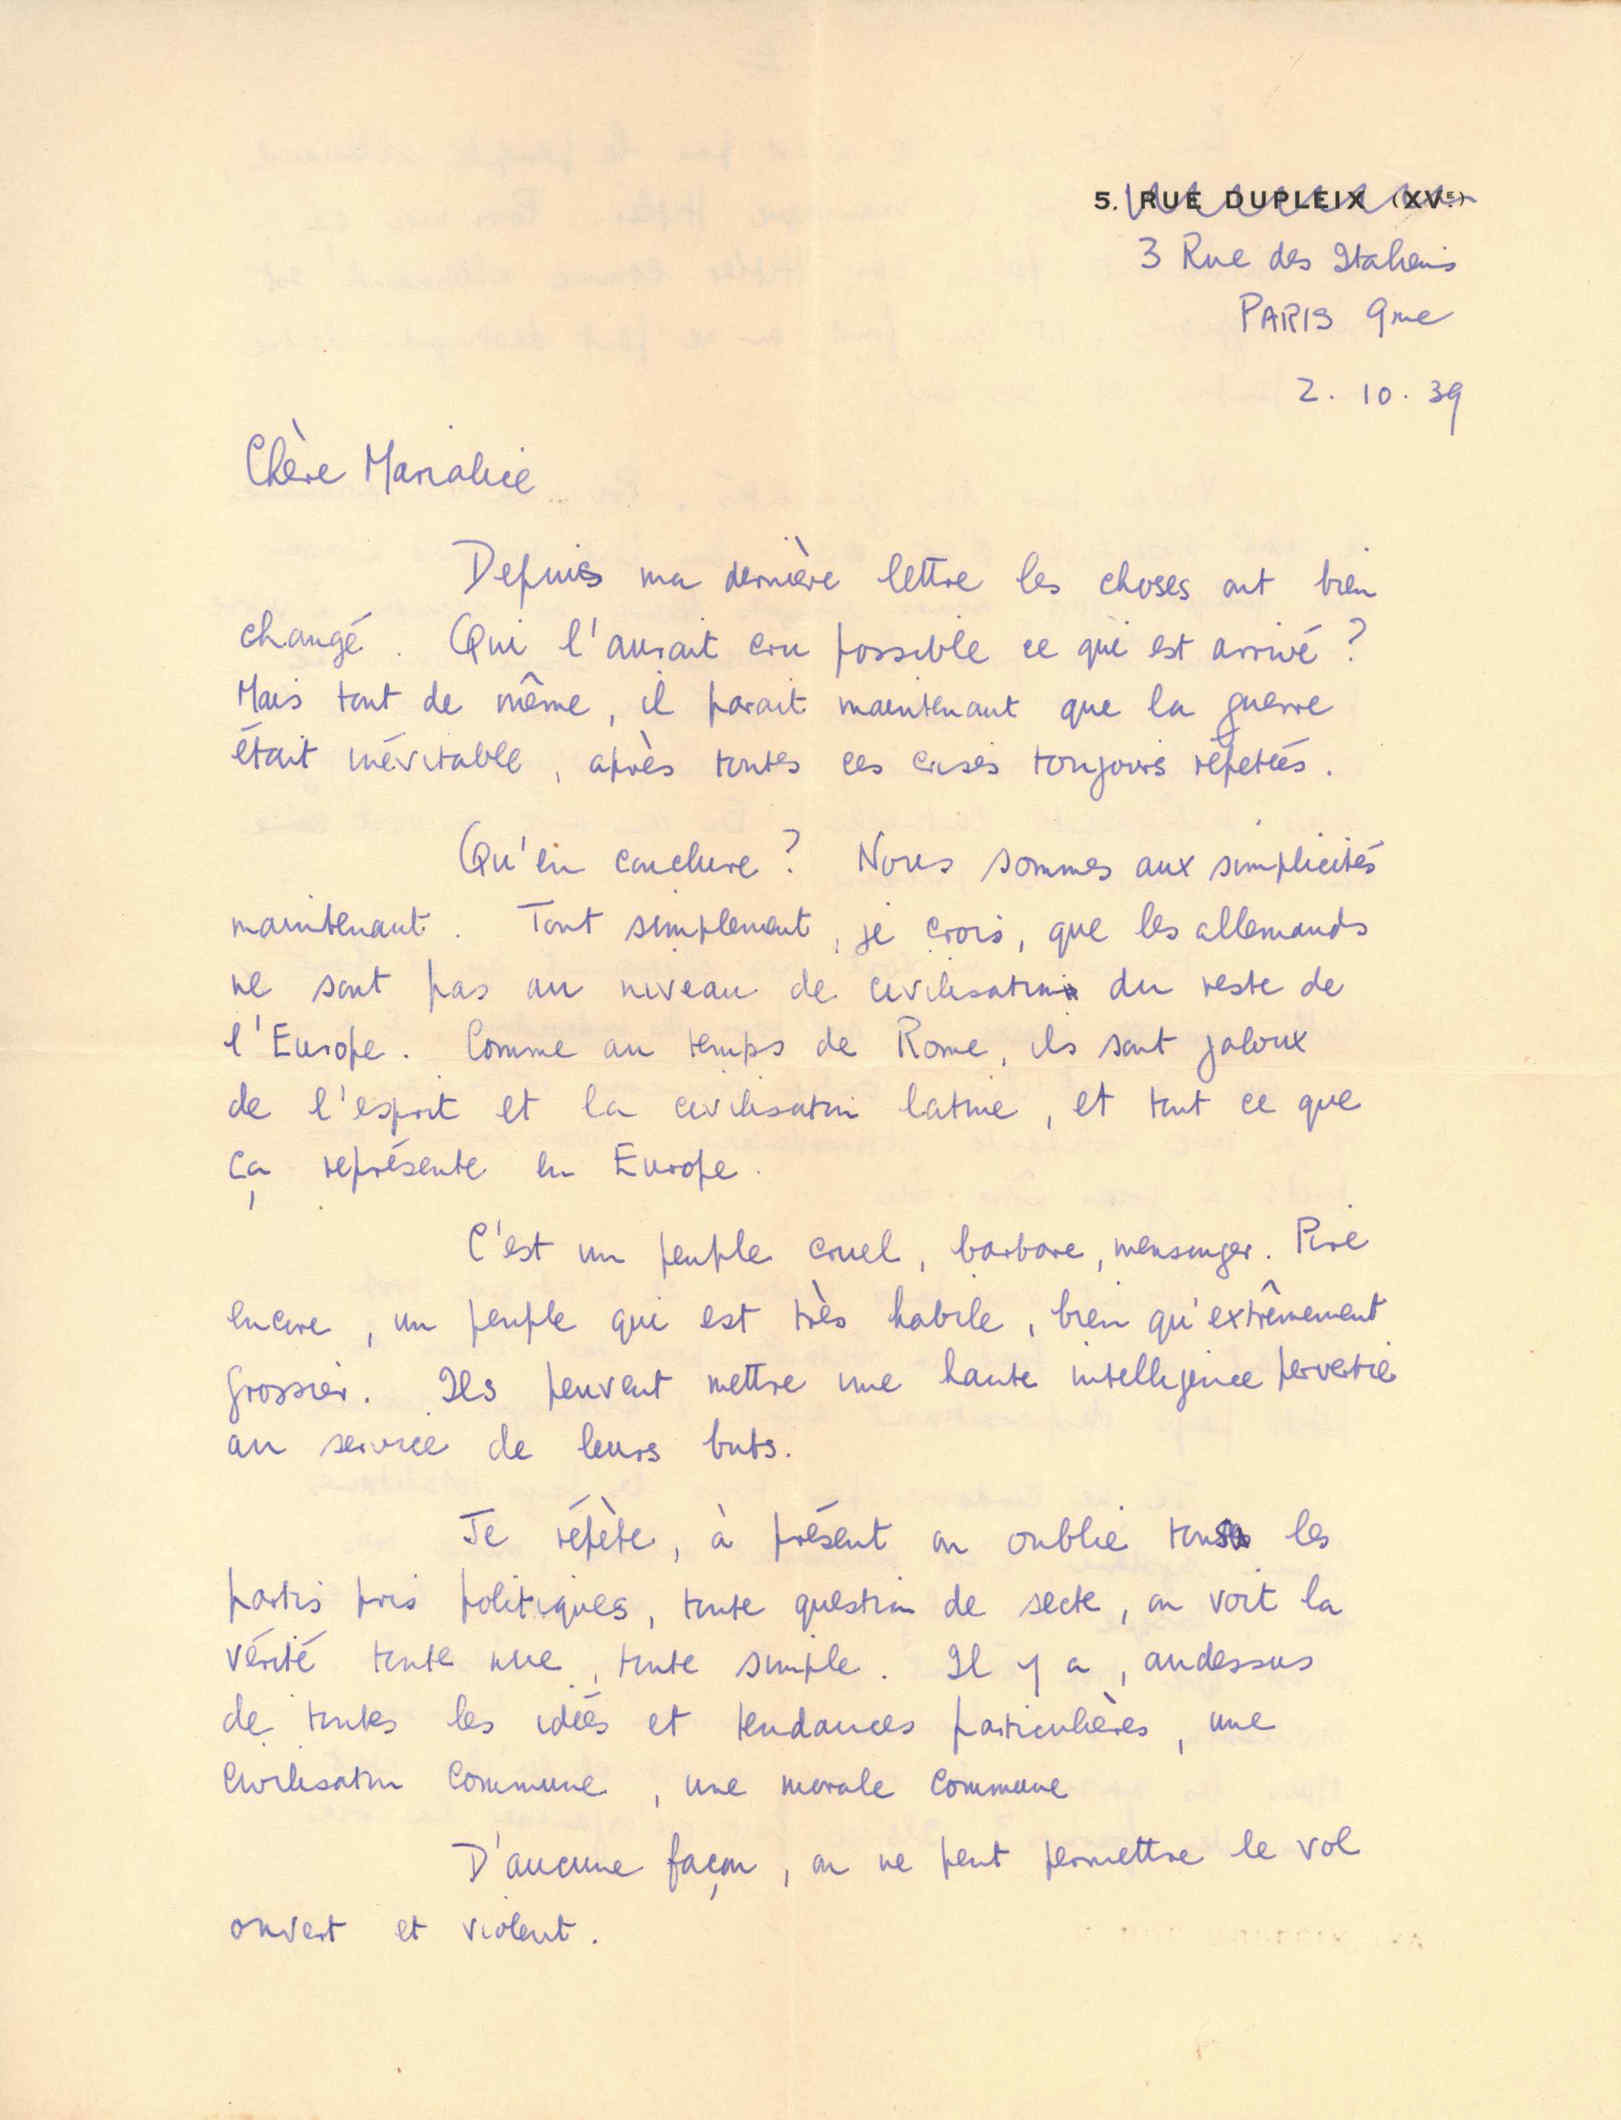 5. RUE DUPLEIX (XVE)
3 Rue des Italiens
PARIS 9me
2. 10. 39
Chère Marialice
Depuis ma dernière lettre les choses ont bien
changé. Qui l'aurait cru possible ce qui est arrivé ?
Mais tout de même, il parait maintenant que la guerre
était inévitable, après toutes ces crises toujours répetées.
Qu'en conclure ? Nous sommes aux simplicités
maintenant. Tout simplement, je crois, que les allemands
ne sont pas au niveau de civilisation du reste de
l'Europe. Comme au temps de Rome, ils sont jaloux
de l'esprit et la civilisation latine, et tout ce que
ça représente en Europe.
C'est un peuple cruel, barbare, mensonger. Pire
encore, un peuple qui est très habile, bien qu'extrêmement
grossier. Ils peuvent mettre une haute intelligence pervertie
au service de leurs buts.
Je répète, à présent on oublie tous les
partis pris politiques, toute question de secte, on voit la
vérité toute nue, toute simple. Il y a, audessus
de toutes les idées et tendances particulières, une
civilisation commune, une morale commune
D'aucune façon, on ne peut permettre le vol
ouvert et violent.